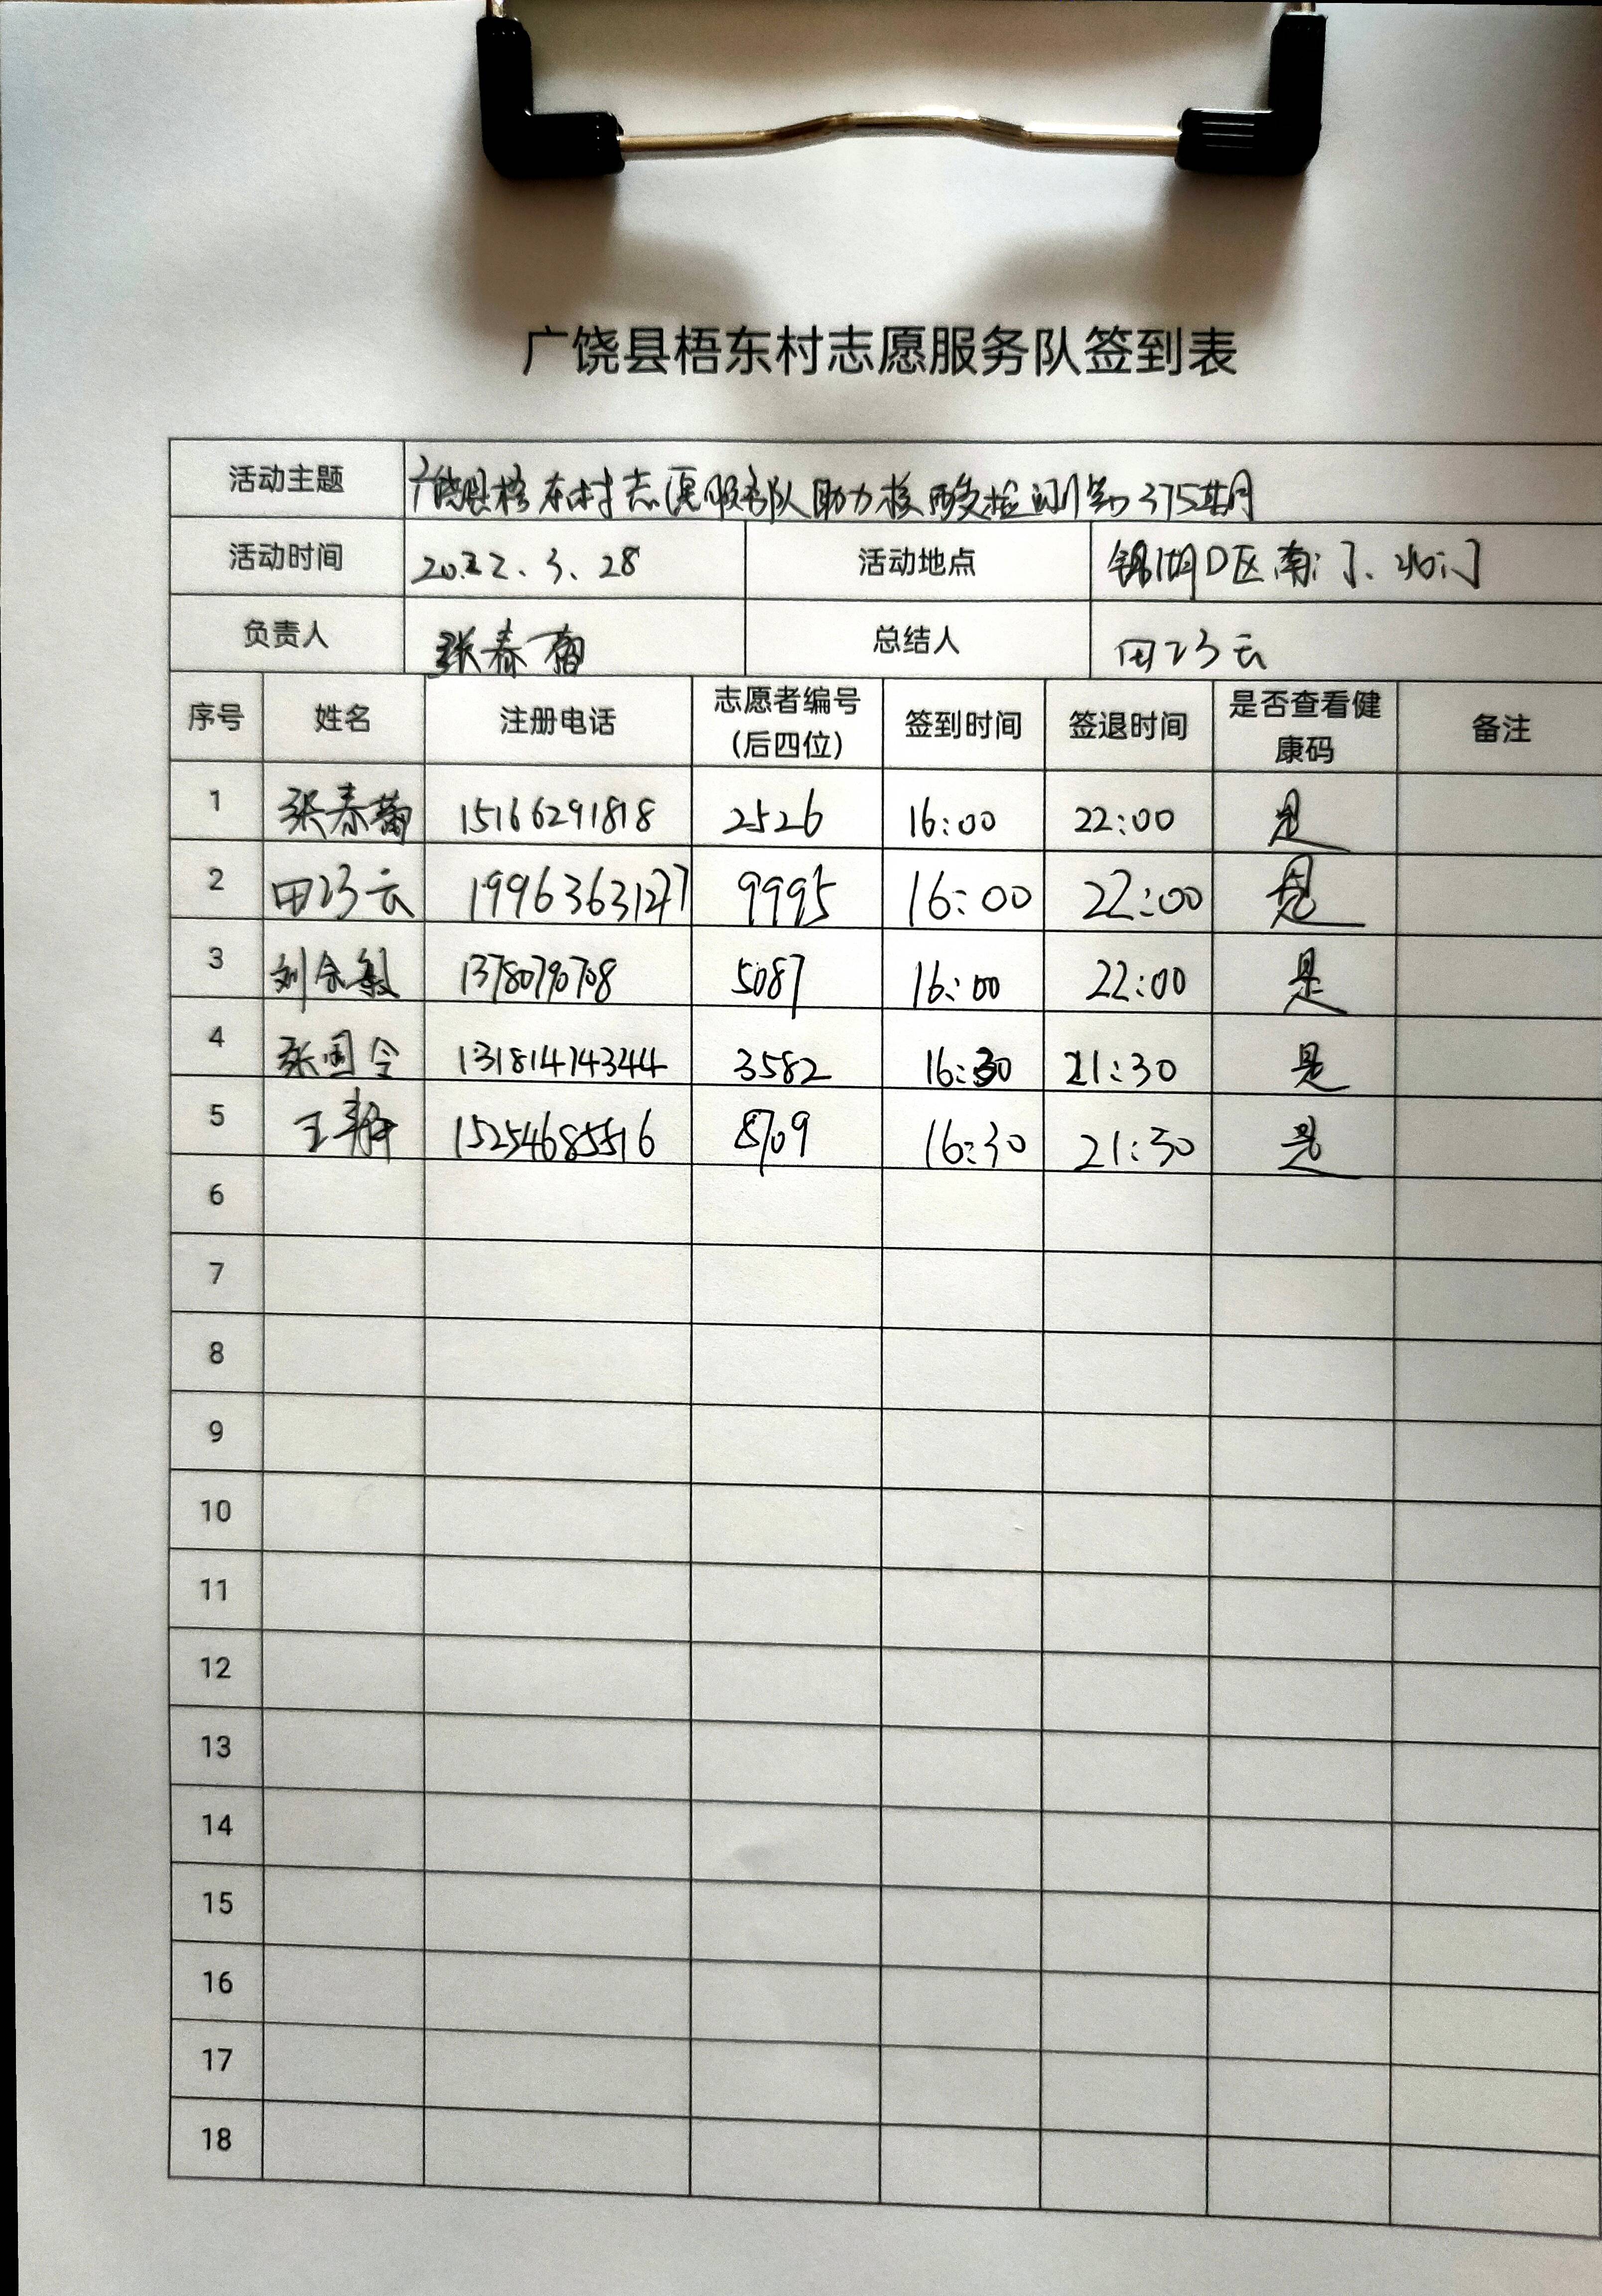 广饶县梧东村志愿服务队签到表
活动主题 广饶县梧东村志愿服务队助力核酸检测第375期
活动时间 2022.3.28 活动地点 锦湖D区南门、北门
负责人 张春蕾 总结人 田巧云
序号 姓名 注册电话 志愿者编号(后四位) 签到时间 签退时间 是否查看健康码 备注
1 张春蕾 15166291818 2526 16:00 22:00 是
2 田巧云 19963631277 9995 16:00 22:00 是
3 刘余敏 13780790708 5087 16:00 22:00 是
4 张国令 13181474344 3582 16:30 21:30 是
5 王静 15254685516 8709 16:30 21:30 是
6
7
8
9
10
11
12
13
14
15
16
17
18